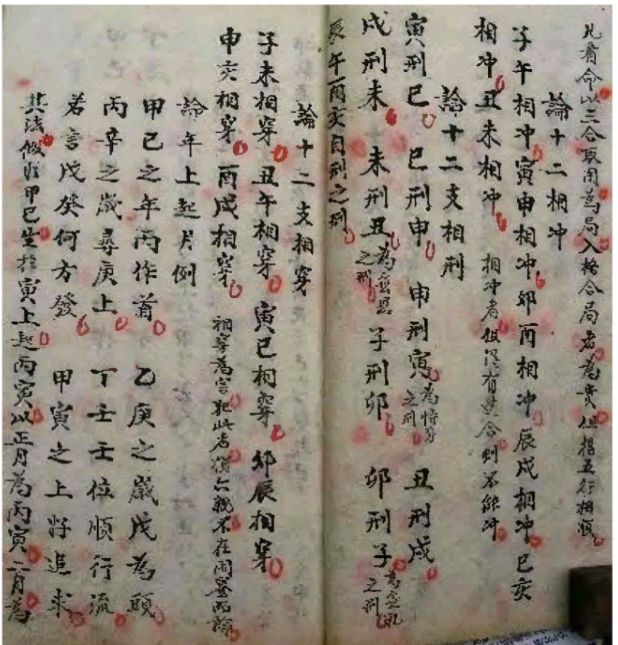 凡看命以三合取用為局入格合局者為貴但揩五行相順
論十二相冲
子午相冲寅申相冲卯酉相冲辰戌相冲巳亥
相冲丑未相冲 相冲者但得有其合則不能冲
論十二支相刑
寅刑巳 巳刑申 申刑寅為恃势之刑 丑刑戌
戌刑未 未刑丑為無恩之刑 子刑卯 卯刑子為無礼之刑
辰午酉亥自刑之刑
論十二支相穿
子未相穿 丑午相穿 寅巳相穿 卯辰相穿
申亥相穿 酉戌相穿 相穿為害犯此者領六親不在
論年上起月例
甲己之年丙作首 乙庚之歲戊為頭
丙辛之歲尋庚上 丁壬壬位順行流
若言戊癸何方發 甲寅之上好追求
其法假如甲己生於寅上起丙寅以正月為丙寅二月為